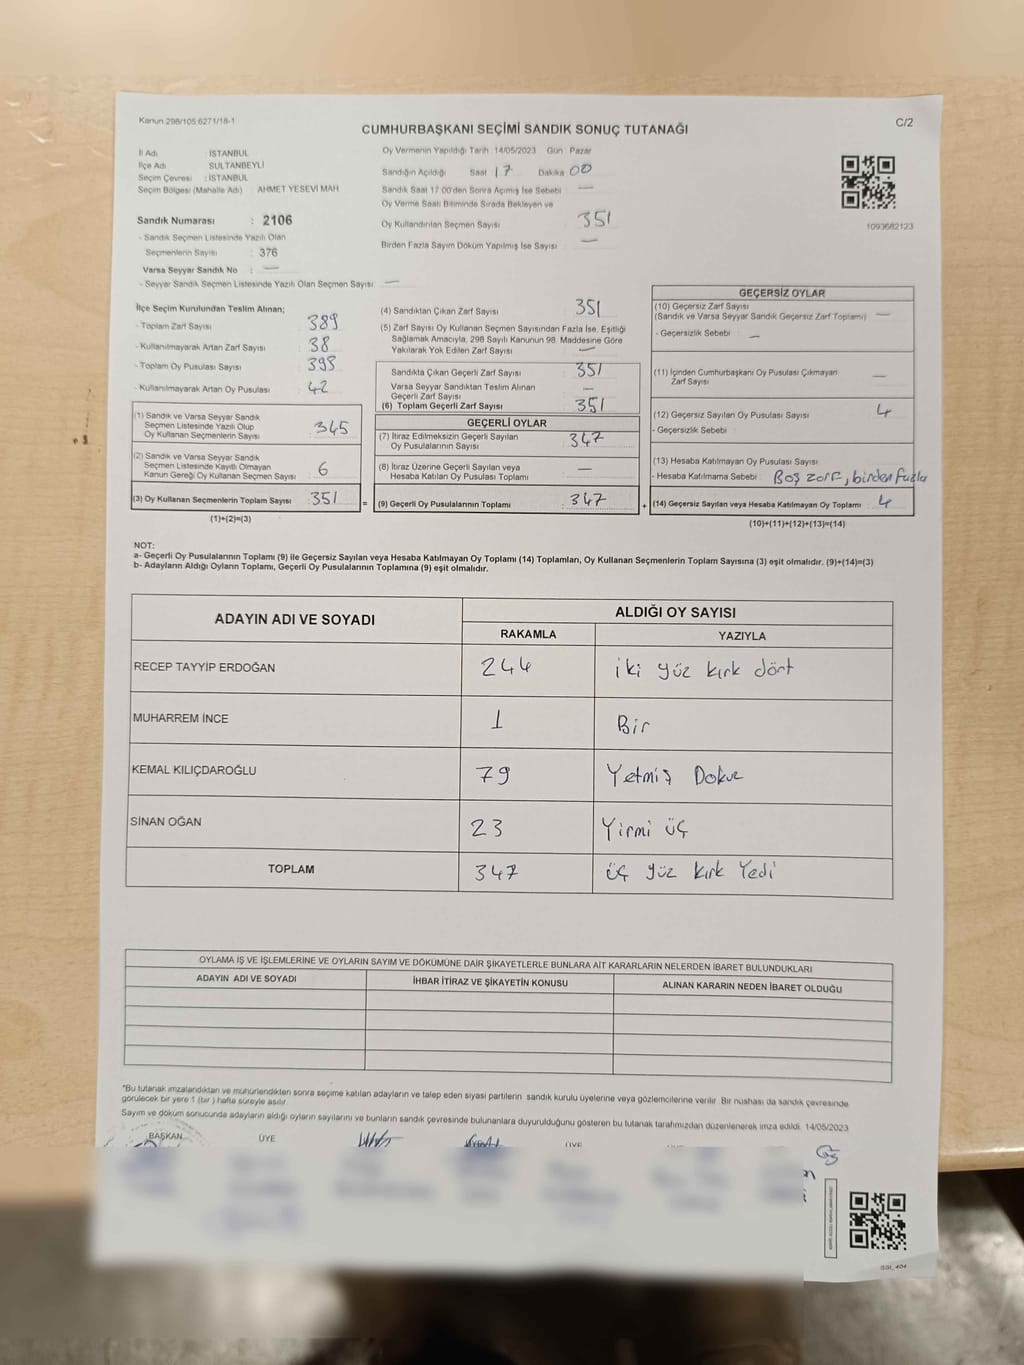 Kanun 298/105 6271/18-1
C/2
CUMHURBAŞKANI SEÇİMİ SANDIK SONUÇ TUTANAĞI
İl Adı : İSTANBUL
İlçe Adı : SULTANBEYLİ
Seçim Çevresi : İSTANBUL
Seçim Bölgesi (Mahalle Adı) AHMET YESEVİ MAH
Sandık Numarası : 2106
- Sandık Seçmen Listesinde Yazılı Olan
Seçmenlerin Sayısı : 376
Varsa Seyyar Sandık No : —
- Seyyar Sandık Seçmen Listesinde Yazılı Olan Seçmen Sayısı: —
Oy Vermenin Yapıldığı Tarih :14/05/2023 Gün : Pazar
Sandığın Açıldığı Saat 17 Dakika 00
Sandık Saat 17:00'den Sonra Açımış İse Sebebi : —
Oy Verme Saati Bitiminde Sırada Bekleyen ve
Oy Kullandırılan Seçmen Sayısı : 351
Birden Fazla Sayım Döküm Yapılmış İse Sayısı : —
1093682123
İlçe Seçim Kurulundan Teslim Alınan;
- Toplam Zarf Sayısı : 389
- Kullanılmayarak Artan Zarf Sayısı : 38
- Toplam Oy Pusulası Sayısı : 393
- Kullanılmayarak Artan Oy Pusulası : 42
(1) Sandık ve Varsa Seyyar Sandık
Seçmen Listesinde Yazılı Olup
Oy Kullanan Seçmenlerin Sayısı : 345
(2) Sandık ve Varsa Seyyar Sandık
Seçmen Listesinde Kayıtlı Olmayan
Kanun Gereği Oy Kullanan Seçmen Sayısı : 6
(3) Oy Kullanan Seçmenlerin Toplam Sayısı : 351 =
(1)+(2)=(3)
(4) Sandıktan Çıkan Zarf Sayısı : 351
(5) Zarf Sayısı Oy Kullanan Seçmen Sayısından Fazla İse, Eşitliği
Sağlamak Amacıyla, 298 Sayılı Kanunun 98. Maddesine Göre
Yakılarak Yok Edilen Zarf Sayısı : —
Sandıkta Çıkan Geçerli Zarf Sayısı : 351
Varsa Seyyar Sandıktan Teslim Alınan
Geçerli Zarf Sayısı : —
(6) Toplam Geçerli Zarf Sayısı : 351
GEÇERLİ OYLAR
(7) İtiraz Edilmeksizin Geçerli Sayılan
Oy Pusulalarının Sayısı : 347
(8) İtiraz Üzerine Geçerli Sayılan veya
Hesaba Katılan Oy Pusulası Toplamı : —
(9) Geçerli Oy Pusulalarının Toplamı : 347 +
GEÇERSİZ OYLAR
(10) Geçersiz Zarf Sayısı
(Sandık ve Varsa Seyyar Sandık Geçersiz Zarf Toplamı) : —
- Geçersizlik Sebebi : —
(11) İçinden Cumhurbaşkanı Oy Pusulası Çıkmayan
Zarf Sayısı : —
(12) Geçersiz Sayılan Oy Pusulası Sayısı : 4
- Geçersizlik Sebebi :
(13) Hesaba Katılmayan Oy Pusulası Sayısı :
- Hesaba Katılmama Sebebi : Boş zarf, birden fazla
(14) Geçersiz Sayılan veya Hesaba Katılmayan Oy Toplamı : 4
(10)+(11)+(12)+(13)=(14)
NOT:
a- Geçerli Oy Pusulalarının Toplamı (9) ile Geçersiz Sayılan veya Hesaba Katılmayan Oy Toplamı (14) Toplamları, Oy Kullanan Seçmenlerin Toplam Sayısına (3) eşit olmalıdır. (9)+(14)=(3)
b- Adayların Aldığı Oyların Toplamı, Geçerli Oy Pusulalarının Toplamına (9) eşit olmalıdır.
ADAYIN ADI VE SOYADI
ALDIĞI OY SAYISI
RAKAMLA YAZIYLA
RECEP TAYYİP ERDOĞAN 244 iki yüz kırk dört
MUHARREM İNCE 1 Bir
KEMAL KILIÇDAROĞLU 79 Yetmiş Dokuz
SİNAN OĞAN 23 Yirmi üç
TOPLAM 347 üç yüz kırk Yedi
OYLAMA İŞ VE İŞLEMLERİNE VE OYLARIN SAYIM VE DÖKÜMÜNE DAİR ŞİKAYETLERLE BUNLARA AİT KARARLARIN NELERDEN İBARET BULUNDUKLARI
ADAYIN ADI VE SOYADI İHBAR İTİRAZ VE ŞİKAYETİN KONUSU ALINAN KARARIN NEDEN İBARET OLDUĞU
*Bu tutanak imzalandıktan ve mühürlendikten sonra seçime katılan adayların ve talep eden siyasi partilerin sandık kurulu üyelerine veya gözlemcilerine verilir. Bir nüshası da sandık çevresinde
görülecek bir yere 1 (bir) hafta süreyle asılır.
Sayım ve döküm sonucunda adayların aldığı oyların sayılarını ve bunların sandık çevresinde bulunanlara duyurulduğunu gösteren bu tutanak tarafımızdan düzenlenerek imza edildi. 14/05/2023
BAŞKAN ÜYE ÜYE